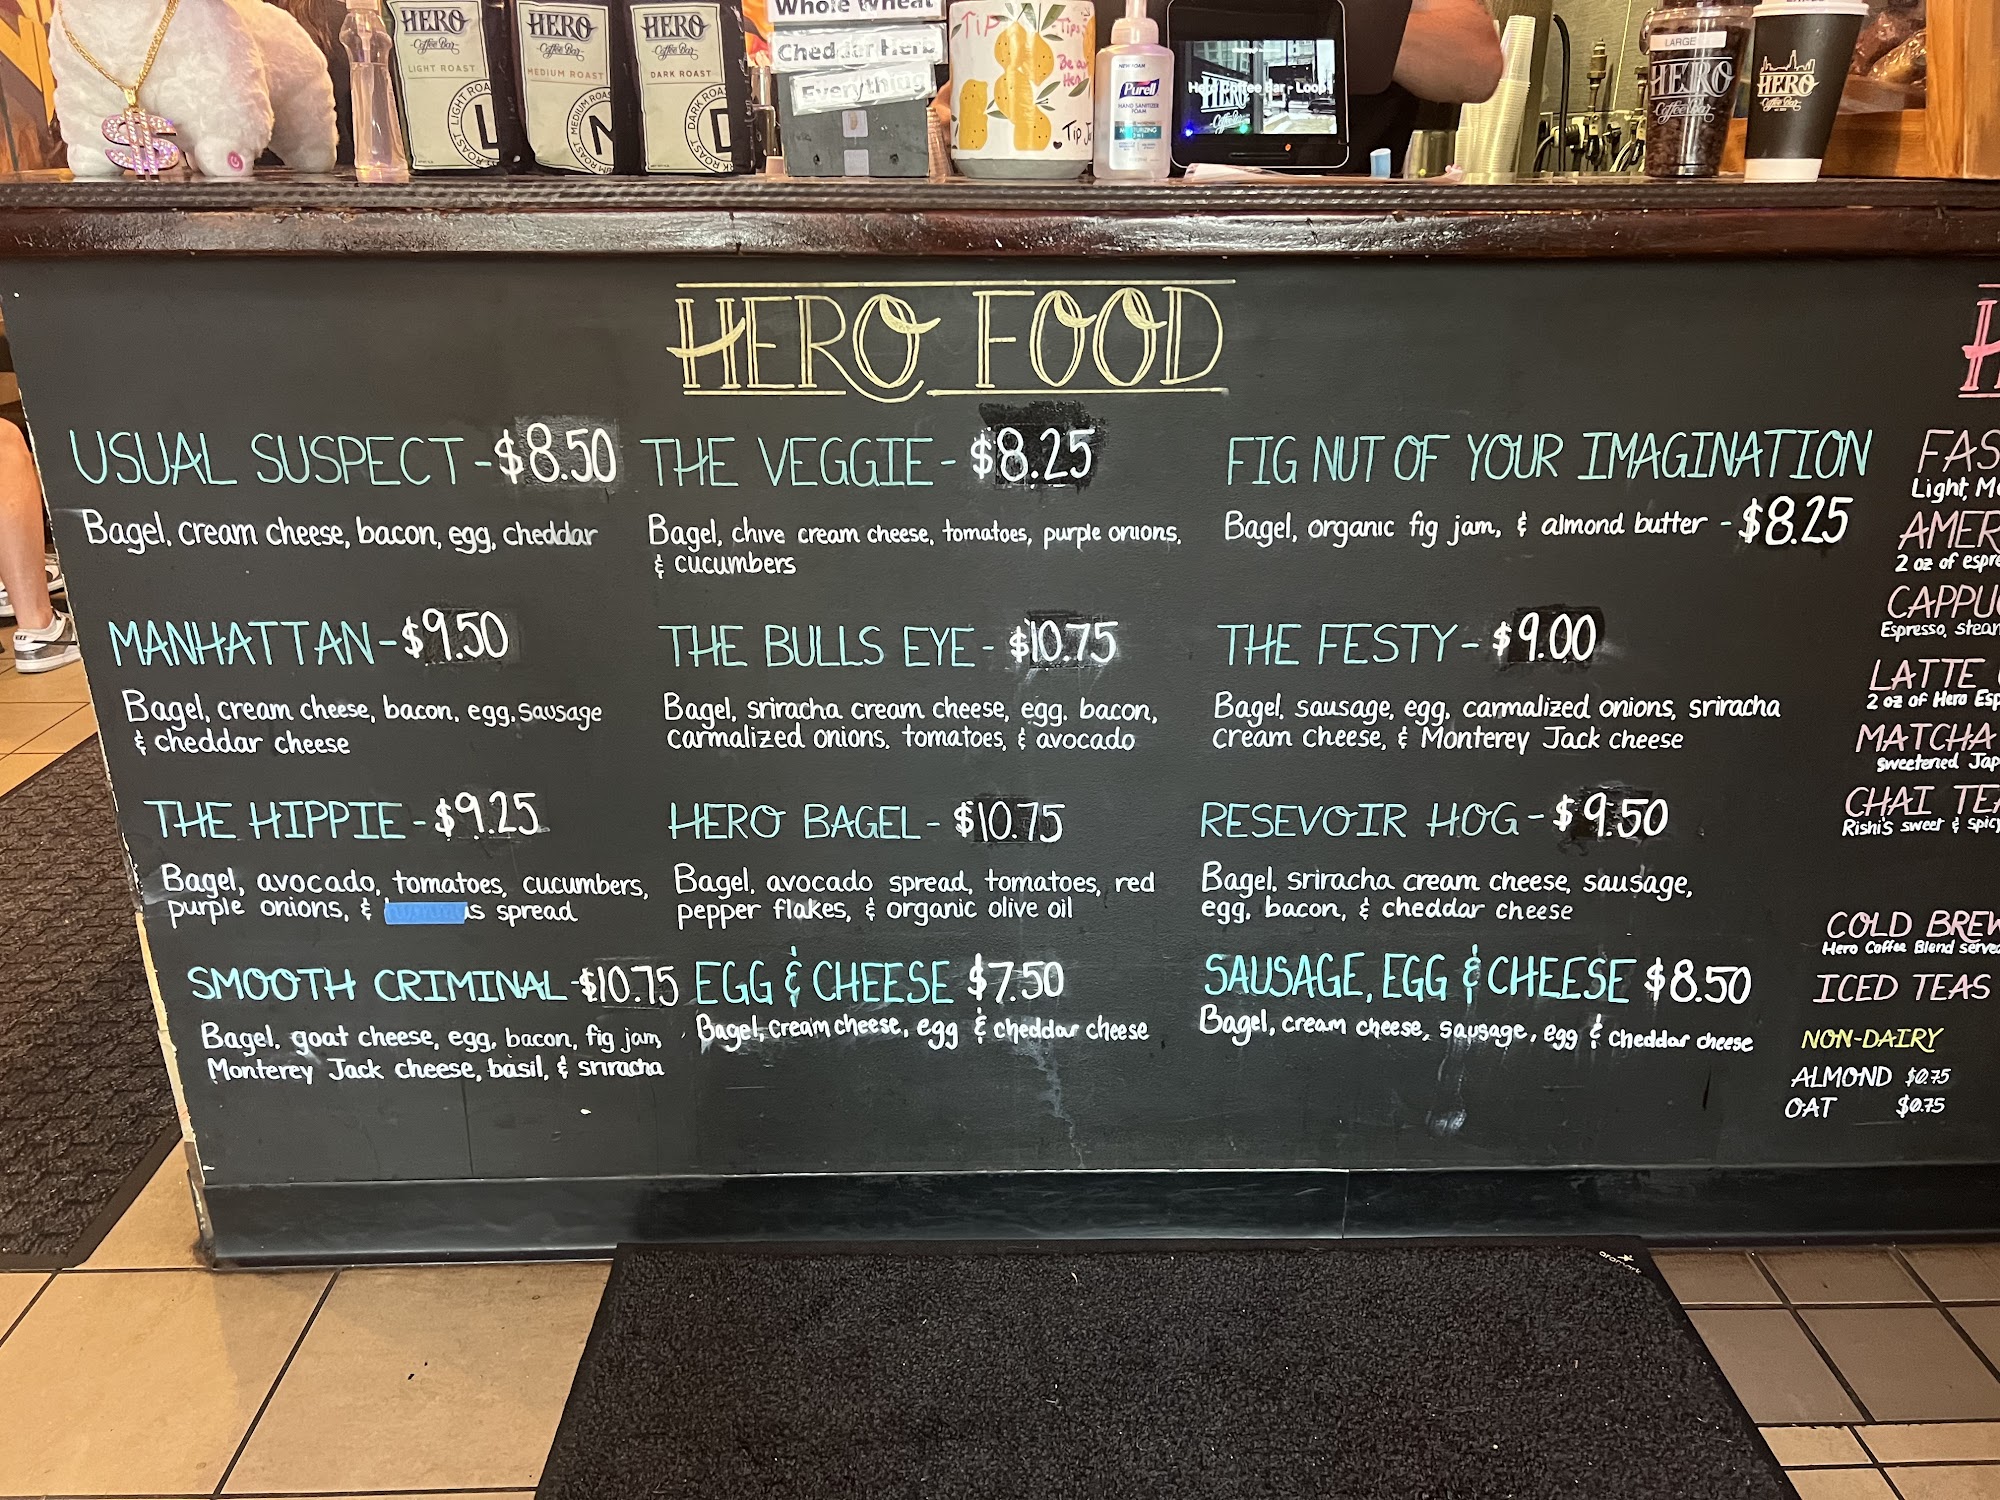 HERO
Coffee Bar
LIGHT ROAST
LIGHT ROA
L
HERO
Coffee Bar
MEDIUM ROAST
MEDIUM ROAS
HERO
Coffee Bar
DARK ROAST
DARK ROAS
D
Whole Wheat
Cheddar Herb
Everything
Tip
Tips
Be a
Hero
Tip Ja
Purell
HAND SANITIZER
FOAM
Hero Coffee Bar - Loop
HERO
Coffee Bar
LARGE
HERO
Coffee Bar
HERO
Coffee Bar
HERO FOOD
USUAL SUSPECT - $8.50
Bagel, cream cheese, bacon, egg, cheddar
MANHATTAN - $9.50
Bagel, cream cheese, bacon, egg, sausage
& cheddar cheese
THE HIPPIE - $9.25
Bagel, avocado, tomatoes, cucumbers,
purple onions, & s spread
SMOOTH CRIMINAL - $10.75
Bagel, goat cheese, egg, bacon, fig jam,
Monterey Jack cheese, basil, & sriracha
THE VEGGIE - $8.25
Bagel, chive cream cheese, tomatoes, purple onions,
& cucumbers
THE BULLS EYE - $10.75
Bagel, sriracha cream cheese, egg, bacon,
carmalized onions, tomatoes, & avocado
HERO BAGEL - $10.75
Bagel, avocado spread, tomatoes, red
pepper flakes, & organic olive oil
EGG & CHEESE $7.50
Bagel, cream cheese, egg & cheddar cheese
FIG NUT OF YOUR IMAGINATION
Bagel, organic fig jam, & almond butter - $8.25
THE FESTY - $9.00
Bagel, sausage, egg, carmalized onions, sriracha
cream cheese, & Monterey Jack cheese
RESEVOIR HOG - $9.50
Bagel, sriracha cream cheese, sausage,
egg, bacon, & cheddar cheese
SAUSAGE, EGG & CHEESE $8.50
Bagel, cream cheese, sausage, egg & cheddar cheese
H
FAS
Light, Me
AMER
2 oz of espre
CAPPUC
Espresso, steam
LATTE
2 oz of Hero Esp
MATCHA
Sweetened Jap
CHAI TEA
Rishi's sweet & spicy
COLD BREW
Hero Coffee Blend served
ICED TEAS
NON-DAIRY
ALMOND $0.75
OAT $0.75
aramark